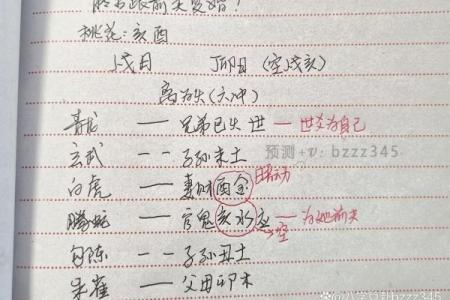 能否跟前夫复婚?
桃花:亥酉
戌月 丁卯日(空戌亥)
离为火(六冲)
青龙 — 兄弟巳火 世 — 世爻为自己
玄武 -- 子孙未土
预测+v: bzzz345
白虎 — 妻财酉金 暗动
腾蛇 — 官鬼亥水应 — 为她前夫
空
勾陈 -- 子孙丑土
朱雀 — 父母卯木
bzzz345